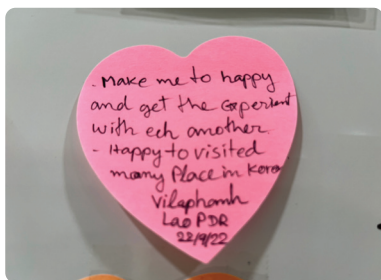 - Make me to happy
and get the Experient
with ech another
- Happy to visited
many Place in Korea
Vilaphanh
Lao PDR
22/9/22